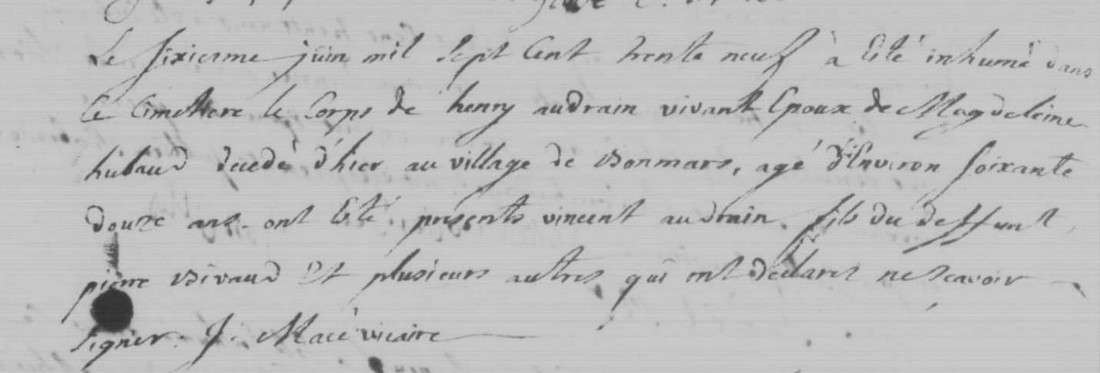 Le sixieme juin mil sept Cent trente neuf à Eté inhumé dans
Ce Cimettere le Corps de henry audrain vivant Epoux de Magdeleine
hubaud decedé d'hier au village de Bonmars, agé d'Environ soixante
douze ans. ont Eté presents vincent audrain fils du deffunt,
pierre Bivaud Et plusieurs autres qui ont declaret ne scavoir
signer. J. Macé vicaire